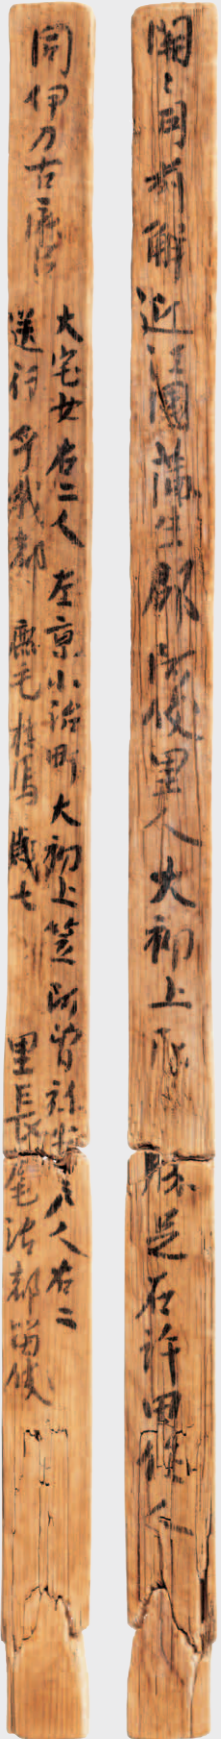 関〻司前解近江國蒲生郡阿伎里人大初上阿勝足石許田作人
同伊刀古麻呂
大宅女右二人左京小治町大初上笠阿曽弥安戸人右二
送行乎我都 鹿毛牡馬歳七 里長尾治都留伎